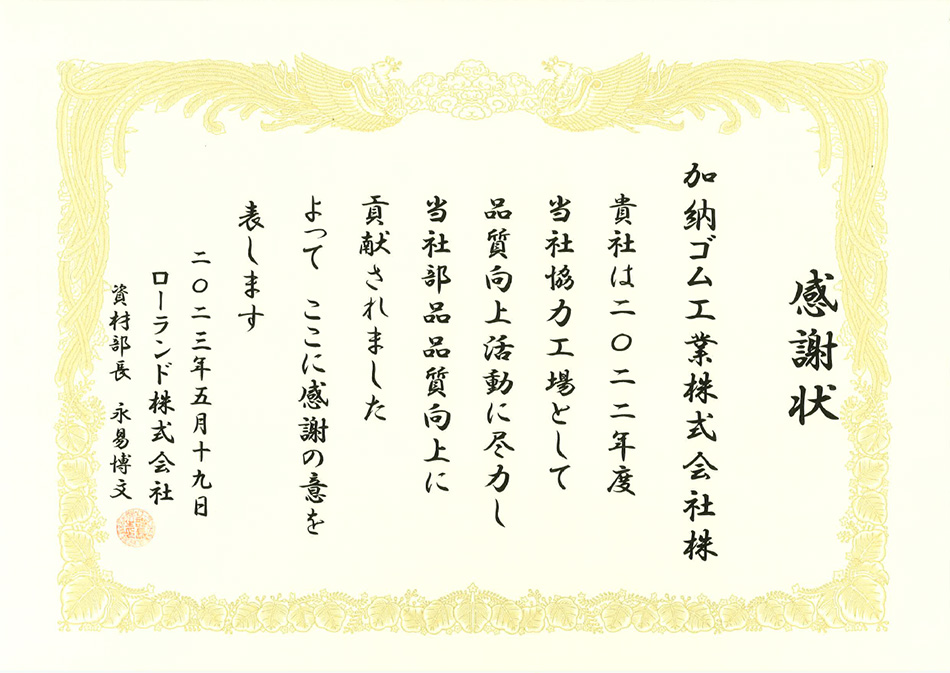 感謝状
加納ゴム工業株式会社株
貴社は二〇二二年度
当社協力工場として
品質向上活動に尽力し
当社部品品質向上に
貢献されました
よって ここに感謝の意を
表します
二〇二三年五月十九日
ローランド株式会社
資材部長 永易博文